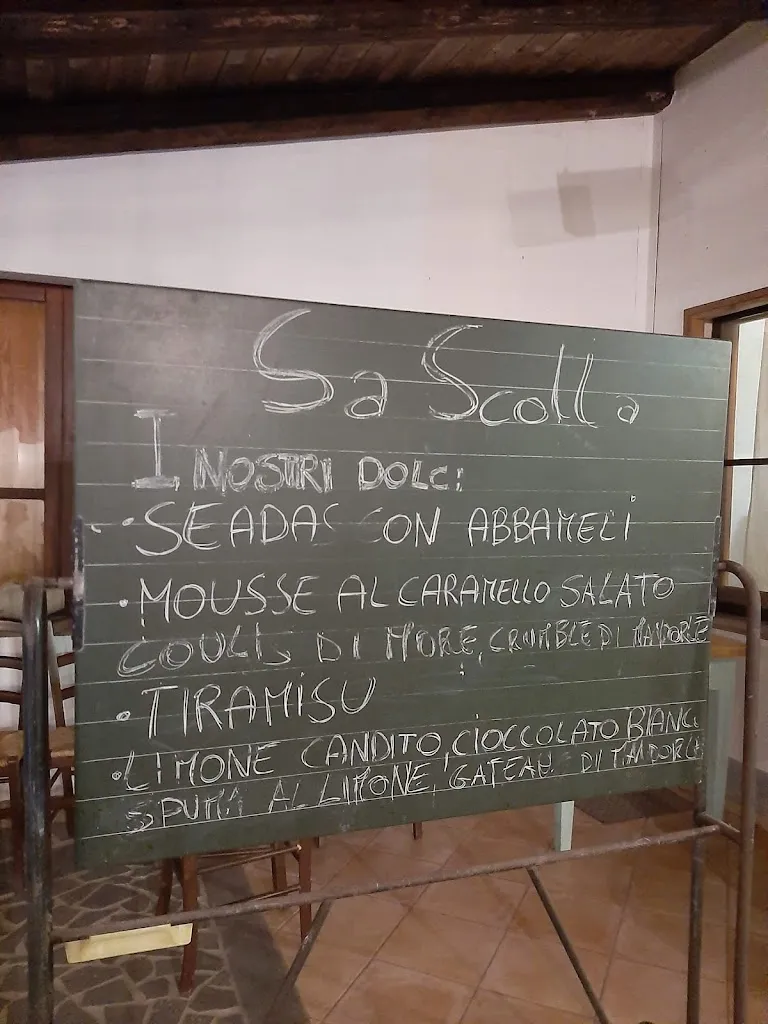 Sa Scolla
I NOSTRI DOLCI
• SEADAS CON ABBAMELI
• MOUSSE AL CARAMELLO SALATO
COULIS DI MORE, CRUMBLE DI MANDORLE
• TIRAMISU
• LIMONE CANDITO, CIOCCOLATO BIANC
SPUMA AL LIMONE, GATEAU DI MANDORLE